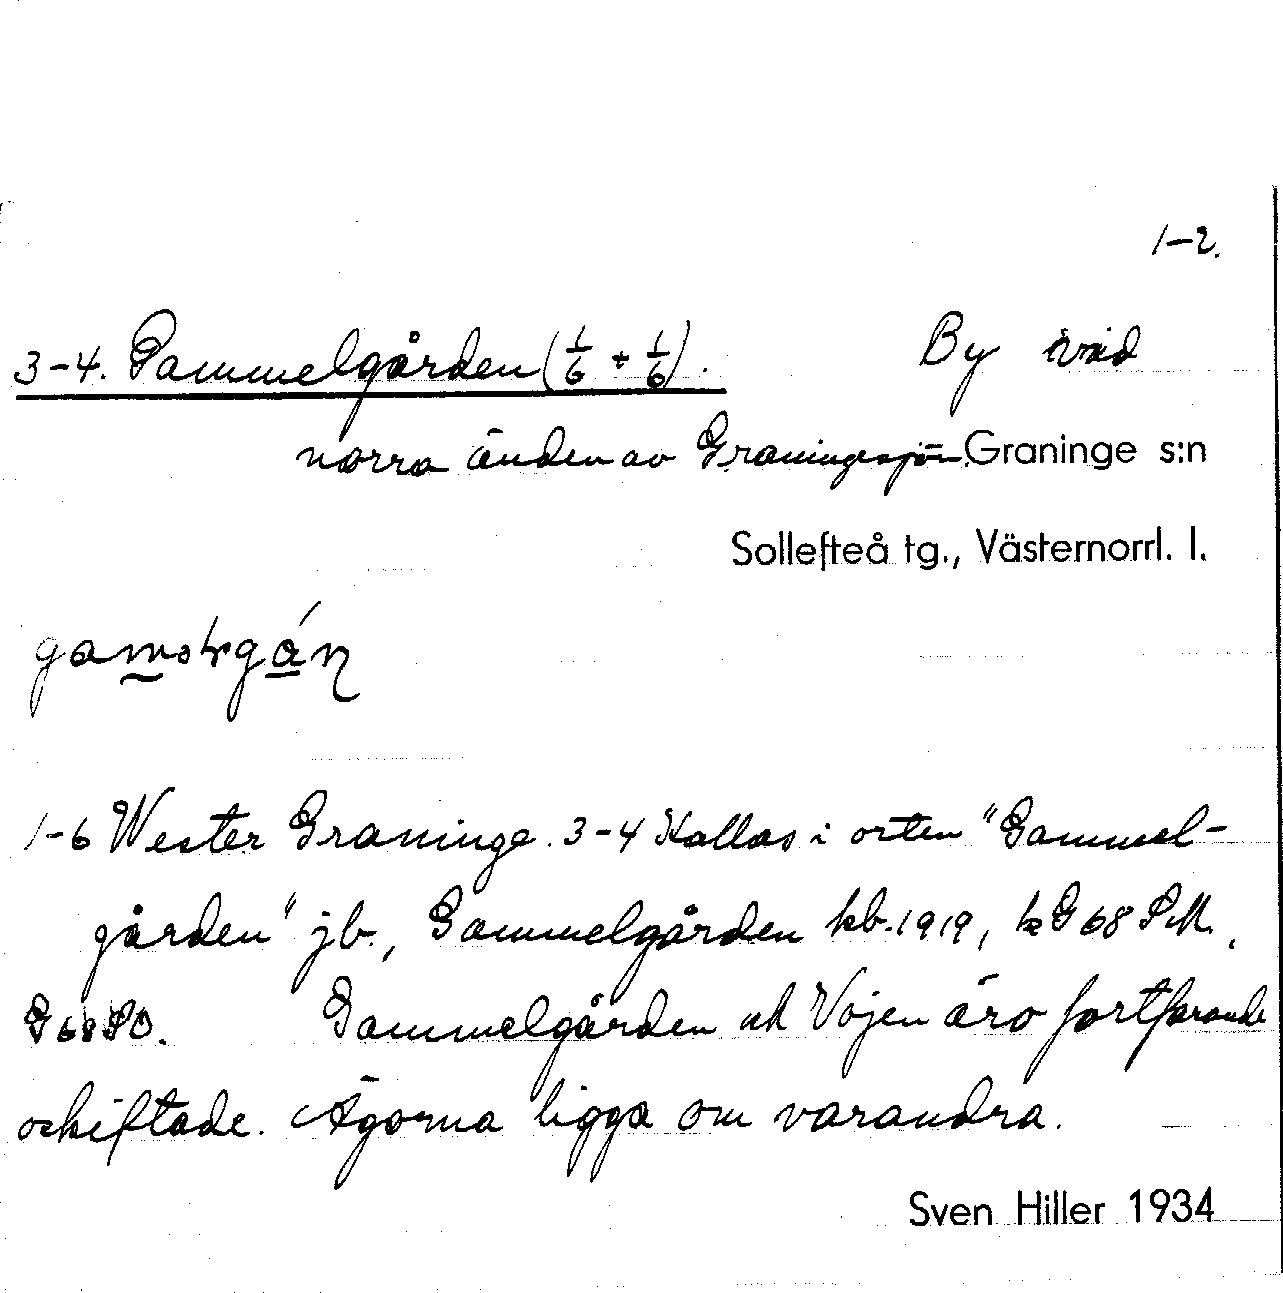 1-2.
3-4. Gammelgården (1/6 + 1/6). By vid
norra änden av Graningesjön. Graninge s:n
Sollefteå tg., Västernorrl. l.
1-6 Wester Graninge. 3-4 Kallas i orten "Gammel-
gården" jb., Gammelgården kb. 1919, k G 68 SM.,
G 68 SO. Gammelgården och Vojen äro fortfarande
oskiftade. Ägorna ligga om varandra.
Sven Hiller 1934